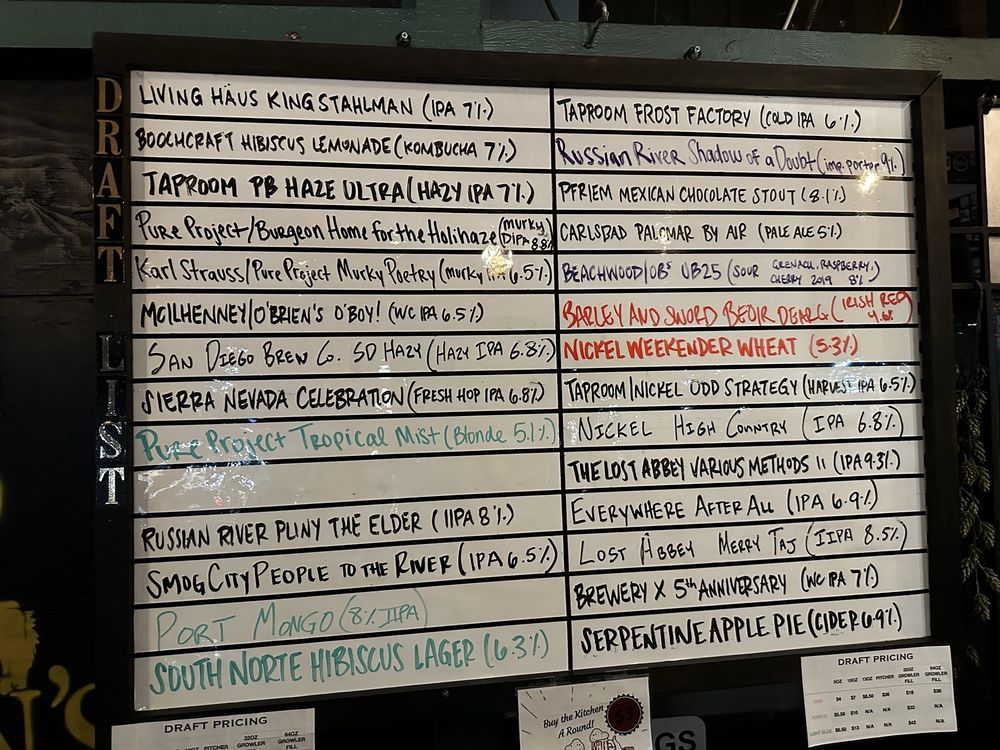 DRAFT LIST
LIVING HÄUS KING STAHLMAN (IPA 7%)
BOOCHCRAFT HIBISCUS LEMONADE (KOMBUCHA 7%)
TAPROOM PB HAZE ULTRA (HAZY IPA 7%)
Pure Project/Burgeon Home for the Holihaze (murky DIPA 8.8%
Karl Strauss/Pure Project Murky Poetry (murky IPA 6.5%)
MCILHENNEY/O'BRIEN'S O'BOY! (WC IPA 6.5%)
SAN DIEGO BREW CO. SD HAZY (HAZY IPA 6.8%)
SIERRA NEVADA CELEBRATION (FRESH HOP IPA 6.8%)
Pure Project Tropical Mist (Blonde 5.1%)
RUSSIAN RIVER PLINY THE ELDER (IIPA 8%)
SMOG CITY PEOPLE TO THE RIVER (IPA 6.5%)
PORT MONGO (8% IIPA)
SOUTH NORTE HIBISCUS LAGER (6.3%)
TAPROOM FROST FACTORY (COLD IPA 6%)
Russian River Shadow of a Doubt (imp. porter 9%)
PFRIEM MEXICAN CHOCOLATE STOUT (8.1%)
CARLSBAD PALOMAR BY AIR (PALE ALE 5%)
BEACHWOOD/OB'S UB25 (SOUR GRENACH, RASPBERRY, CHERRY 2019 8%)
BARLEY AND SWORD BEOIR DEARG (IRISH RED 4.6%
NICKEL WEEKENDER WHEAT (5.3%)
TAPROOM/NICKEL ODD STRATEGY (HARVEST IPA 6.5%)
NICKEL HIGH COUNTRY (IPA 6.8%)
THE LOST ABBEY VARIOUS METHODS 11 (IPA 9.3%)
EVERYWHERE AFTER ALL (IPA 6.9%)
LOST ABBEY MERRY TAJ (IIPA 8.5%)
BREWERY X 5th ANNIVERSARY (WC IPA 7%)
SERPENTINE APPLE PIE (CIDER 6.9%)
DRAFT PRICING
PITCHER 32OZ GROWLER 64OZ GROWLER
Buy the Kitchen A Round!
$3
GS
DRAFT PRICING
5OZ 10OZ 13OZ PITCHER 32OZ GROWLER FILL 64OZ GROWLER FILL
$4 $7 $8.50 $36 $18 $36
PURPLE $5.50 $10 N/A N/A $33 N/A
LIGHT BLUE $6.50 $13 N/A N/A $42 N/A